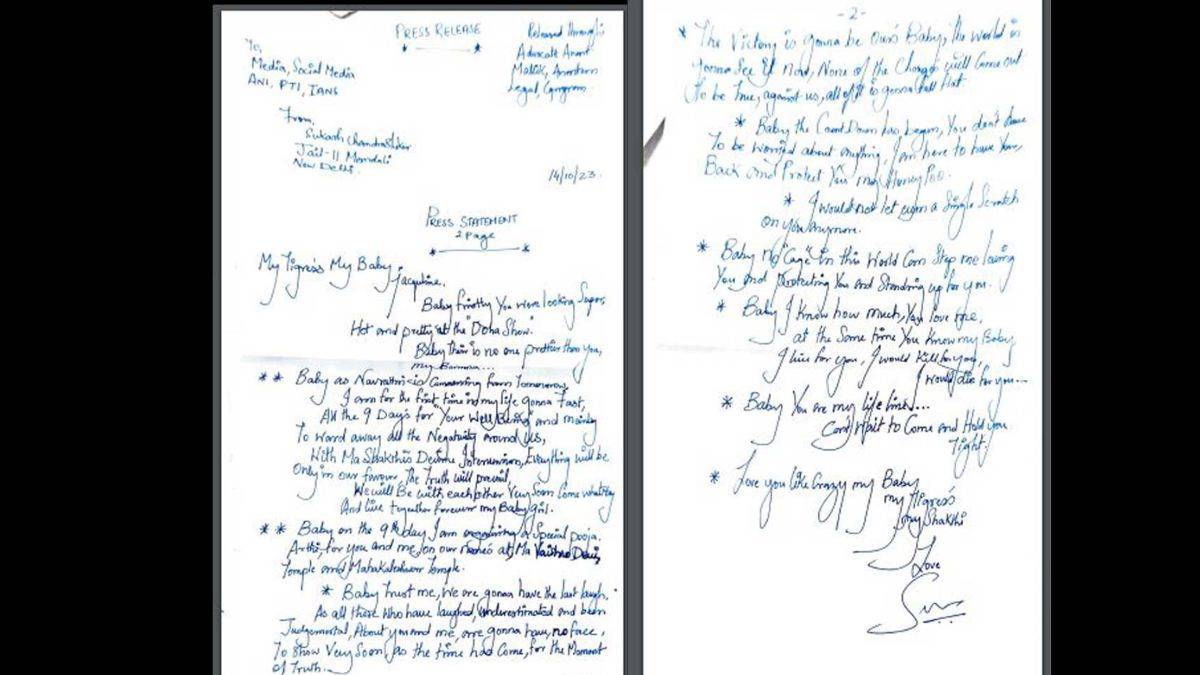 PRESS RELEASE
Released through:
Advocate Anant
Mallik, Anantam
Legal, Gurugram.
To,
Media, Social Media
ANI, PTI, IANS
From,
Sukash Chandrashekar
Jail-11 Mandoli
New Delhi.
14/10/23.
PRESS STATEMENT
2 Page
My Tigress My Baby Jacqueline.
Baby firstly You were looking Super,
Hot and pretty at the "Doha Show".
Baby there is no one prettier than you,
my
** Baby as Navratri is Commencing from Tomorrow,
I am for the first time in my life gonna Fast,
All the 9 Days for "Your Well Being" and mainly
To ward away all the Negativity around Us,
With Ma Shakthis Devine Intervention, Everything will be
Only in our favour, The Truth will prevail,
We will Be with each other Very Soon Come what may
And live together forever my Baby girl.
** Baby on the 9th day I am organising a Special pooja,
Arthi, for you and me, on our at, Ma Vaishno Devi,
Temple and Mahakaleshwar Temple.
* Baby trust me, We are gonna have the last laugh.
As all these who have laughed, underestimated and been
Judgemental, About you and me, are gonna have, no face,
To show Very Soon, as the time has Come, for the Moment
of Truth.
- 2 -
* The Victory is gonna be our's Baby, the world is
gonna See it Now, None of the Charges will Come out
To be true, against us, all of it is gonna fall flat.
* Baby the Count Down has began, You don't have
To be worried about anything, I am here to have Your
Back and Protect You my Honey Poo.
* I would not let even a Single Scratch
on you anymore.
* Baby no "Cage" in this World Can Stop me loving
You and protecting You and Standing up for you.
* Baby I know how much, You love me,
at the Same time You Know my Baby
I live for you, I would Kill for you,
I would die for you...
* Baby You are my life line...
Can't Wait to Come and Hold you
Tight.
* Love you like Crazy my Baby
my Tigress
my Shakthi
Love